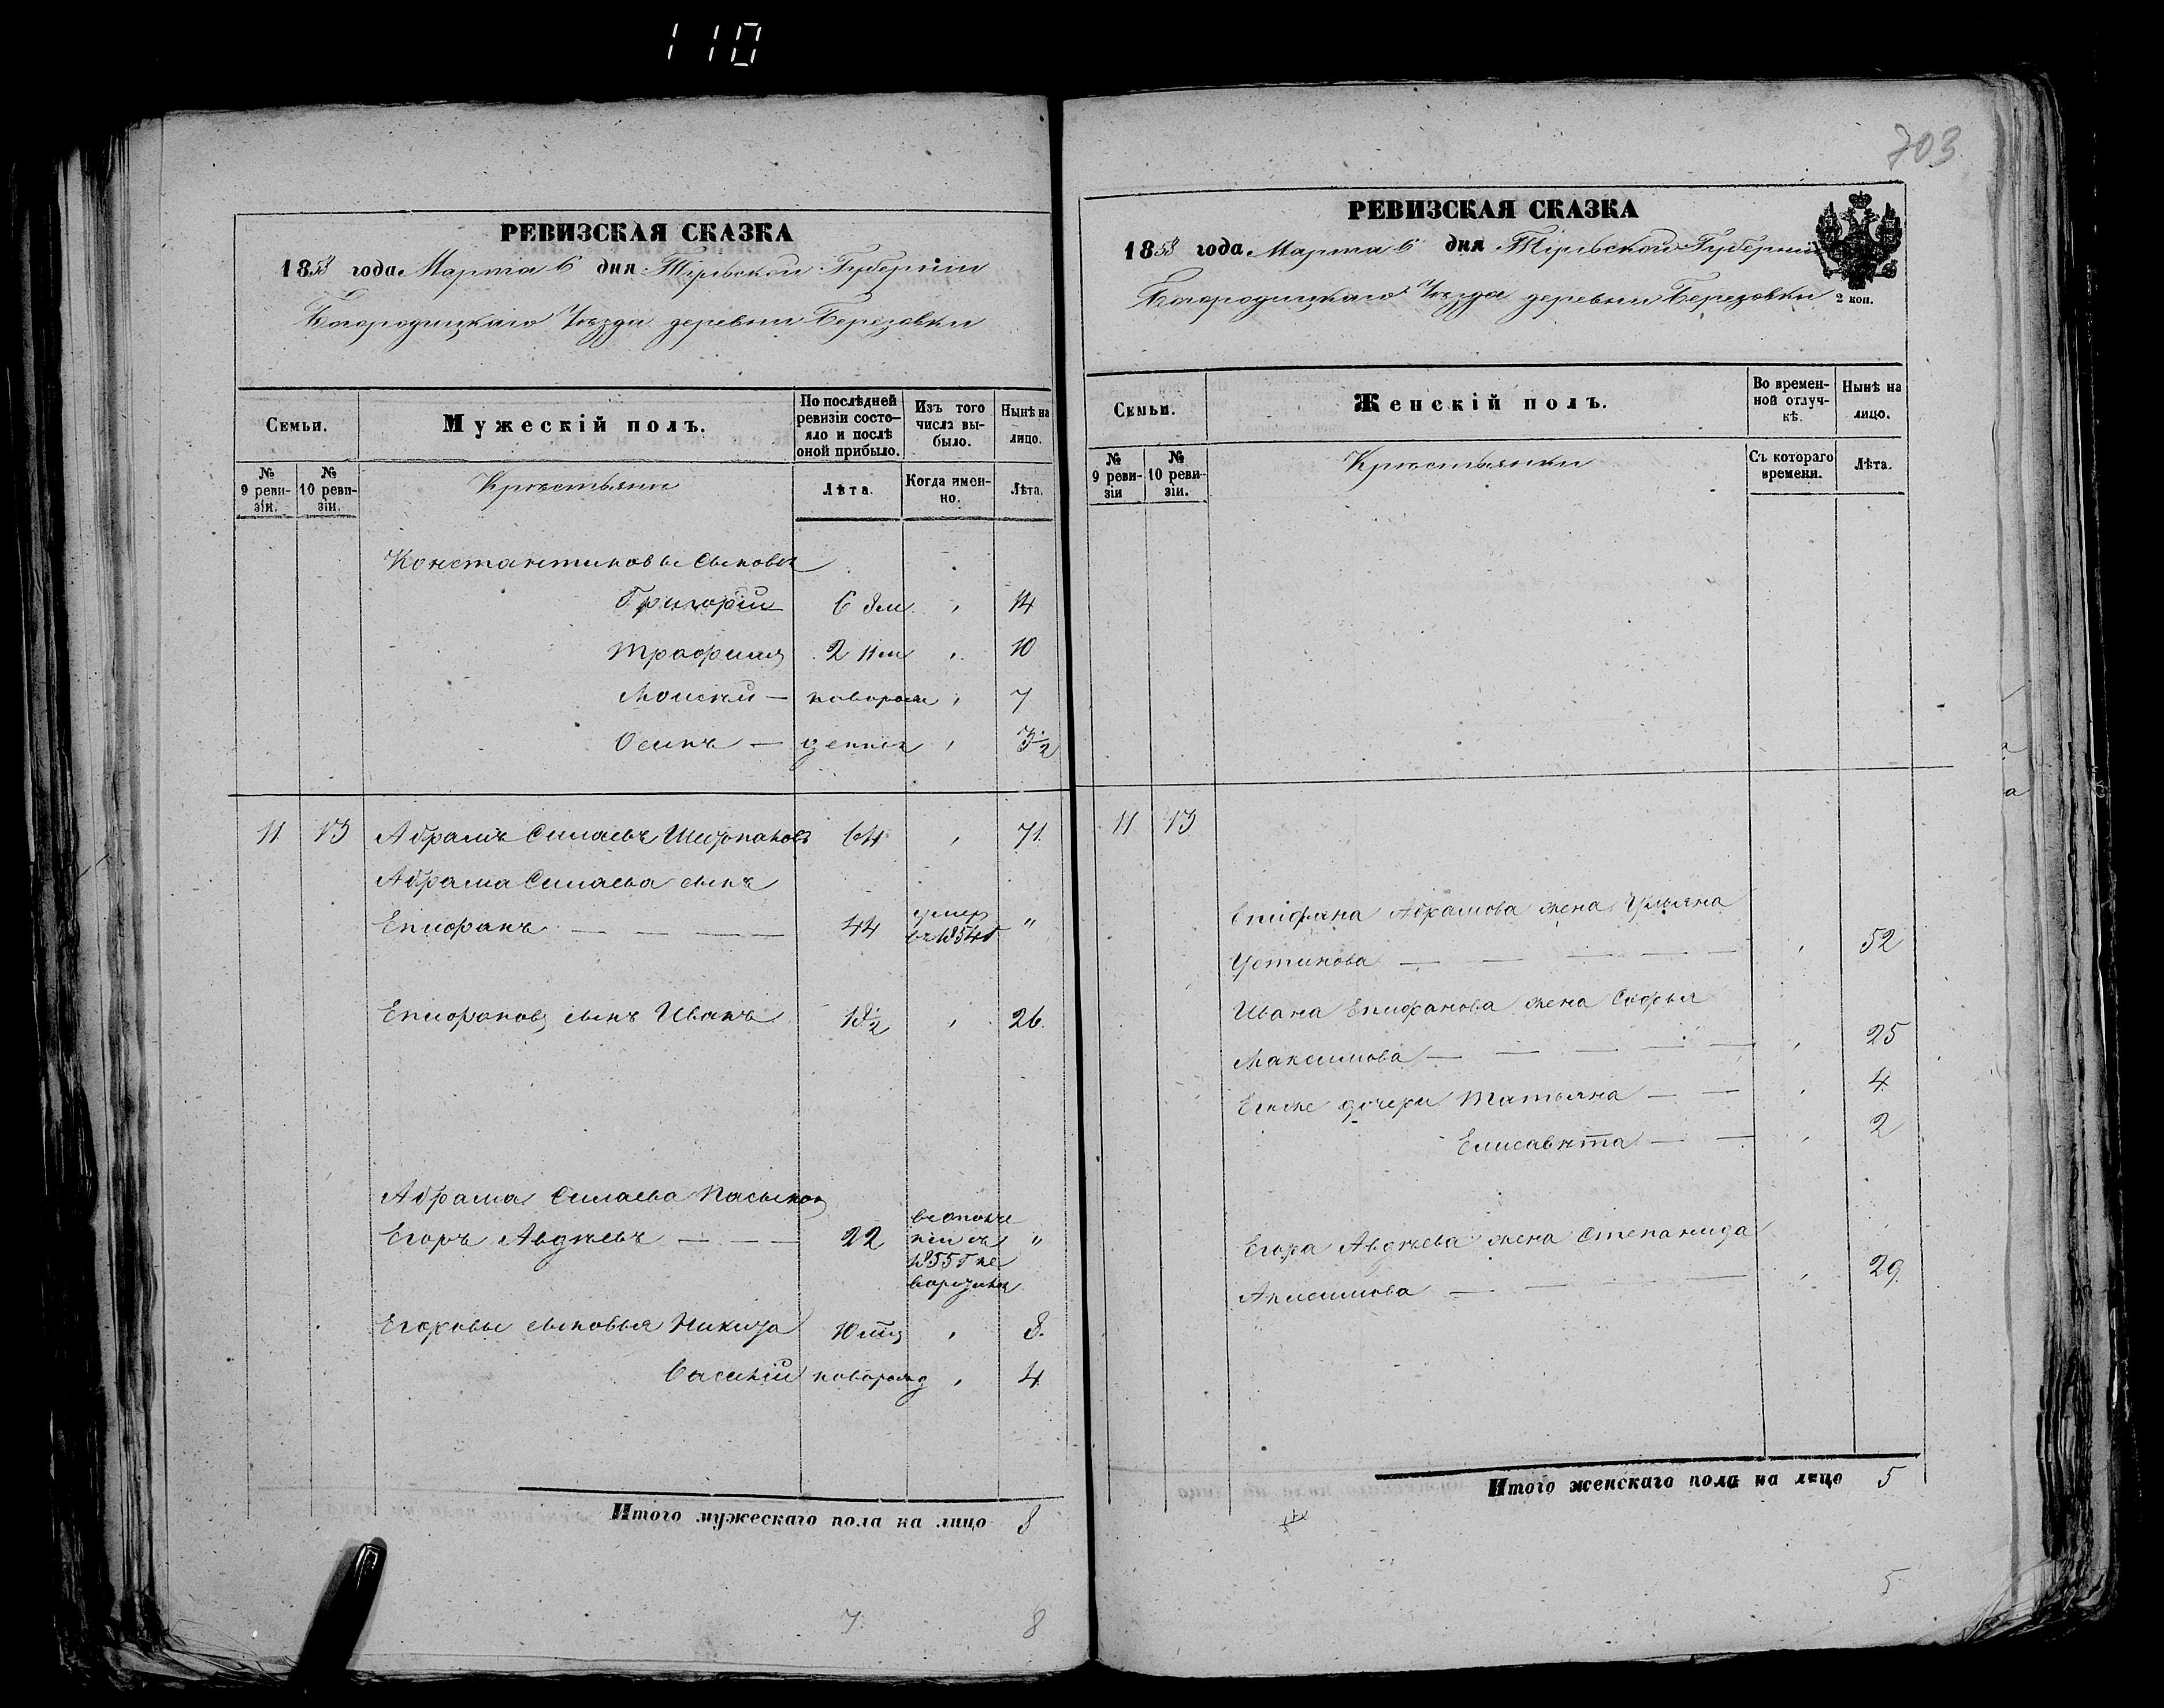 110
703
РЕВИЗСКАЯ СКАЗКА
1858 года Марта 6 дня Тульской Губерніи
Богородицкаго Уѣзда деревни Березовки
Семьи.
Мужескій полъ.
По послѣдней ревизіи состо-
яло и послѣ
оной прибыло.
Изъ того
числа вы-
было.
Нынѣ на
лицо.
№
9 реви-
зіи.
№
10 реви-
зіи.
Крестьяне
Лѣта.
Когда имен-
но.
Лѣта.
Константиновы сыновья
Григорій 6 8м 14
Трофимъ 2 11м 10
Моисей — новорож 7
Осипъ — денные 3½
11 13 Абрамъ Силаевъ 64 71.
Абрама Силаева сынъ
Епифанъ — — — — 44 умер
въ 1854 г "
Епифановъ сынъ Иванъ 18½ 26.
Абрама Силаева пасынок
Егоръ Авдѣевъ — — — 22 "
1855 г не
Егоровы сыновья Никита 8.
Василій новорожд 4
Итого мужескаго пола на лицо 8
7 8
РЕВИЗСКАЯ СКАЗКА
1858 года Марта 6 дня Тульской Губерніи
Богородицкаго Уѣзда деревни Березовки 2 коп.
Семьи.
Женскій полъ.
Во времен-
ной отлуч-
кѣ.
Нынѣ на
лицо.
№
9 реви-
зіи
№
10 реви-
зіи.
Крестьянки
Съ котораго
времени.
Лѣта.
11 13
Епифана Абрамова жена Ульяна
Устинова — — — — — 52
Ивана Епифанова жена Софья
Максимова — — — — — 25
Ихже дочери Татьяна — — 4
Елисавѣта — — 2
Егора Авдѣева жена Степанида
Анисимова — — — 29.
Итого женскаго пола на лицо 5
5